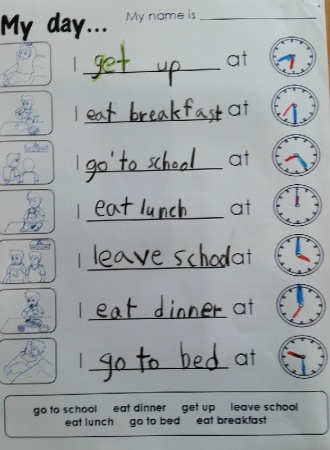 My name is
My day...
I get up at
I eat breakfast at
I go to school at
I eat lunch at
I leave school at
I eat dinner at
I go to bed at
go to school eat dinner get up leave school
eat lunch go to bed eat breakfast